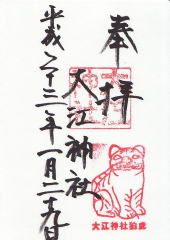 奉拝
大江神社
平成二十三年一月二十九日
大江神社狛虎